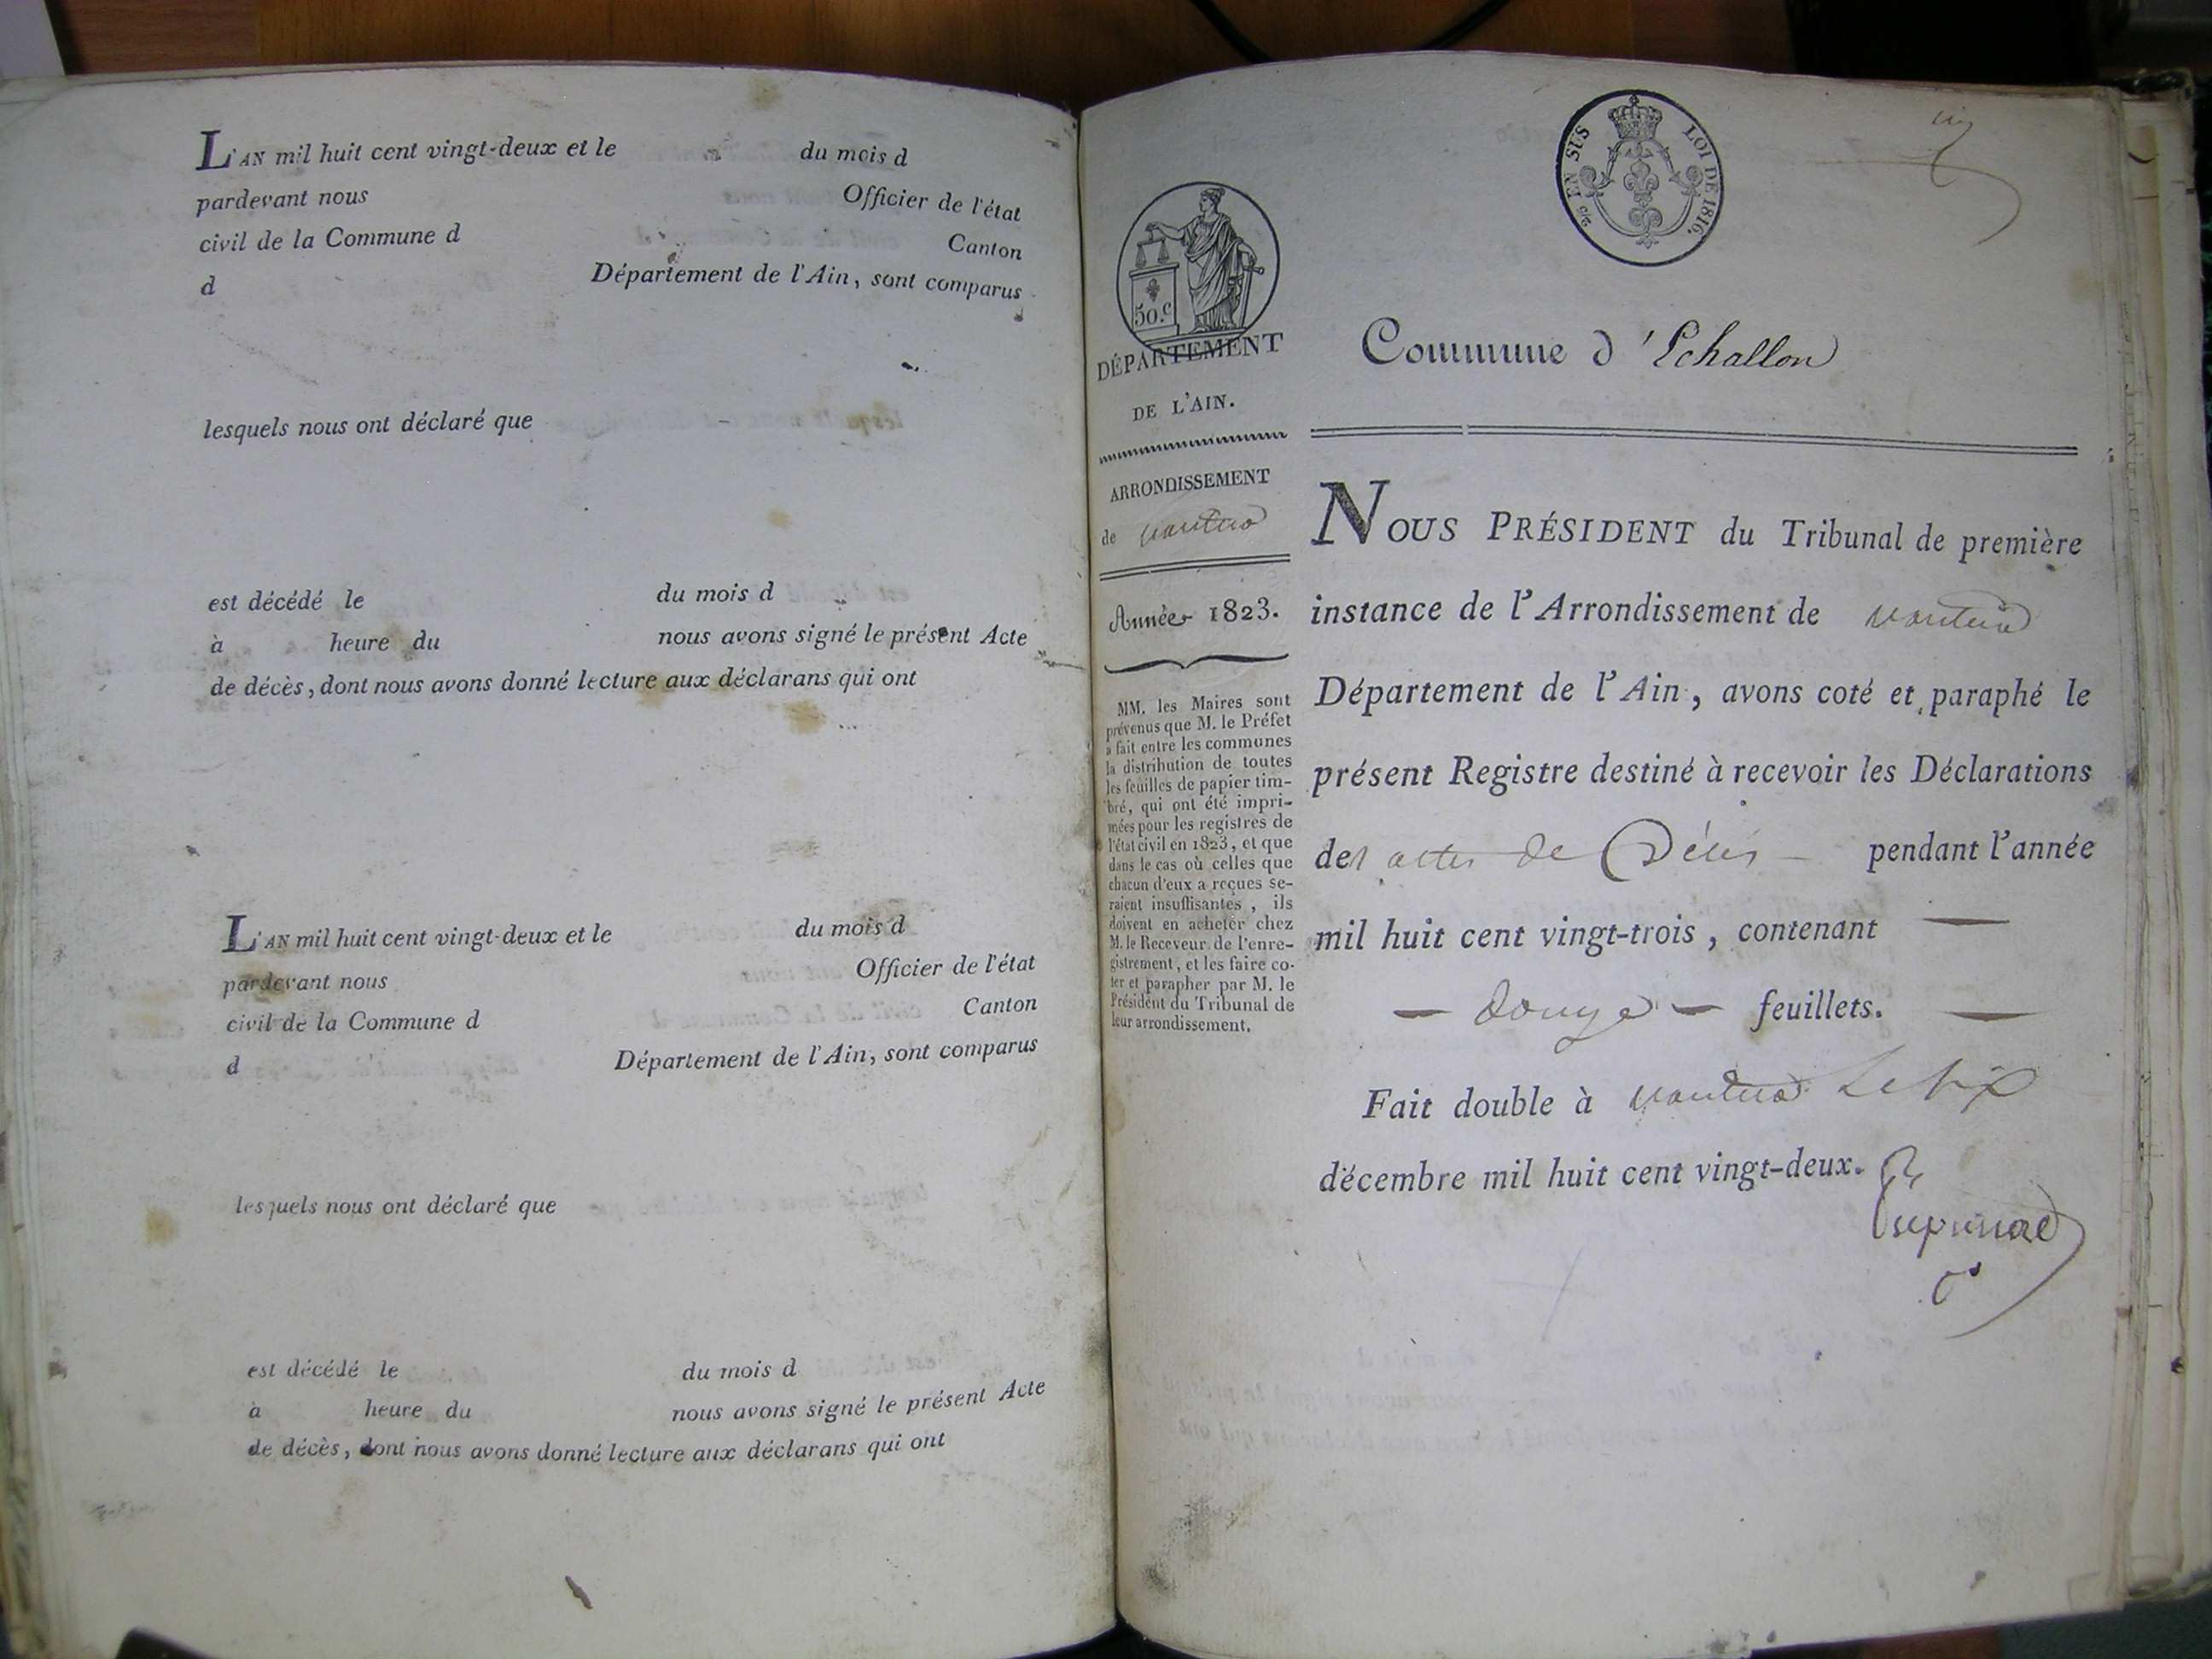 L'AN mil huit cent vingt-deux et le du mois d
pardevant nous Officier de l'état
civil de la Commune d Canton
d Département de l'Ain, sont comparus
lesquels nous ont déclaré que
est décédé le du mois d
à heure du nous avons signé le présent Acte
de décès, dont nous avons donné lecture aux déclarans qui ont
L'AN mil huit cent vingt-deux et le du mois d
pardevant nous Officier de l'état
civil de la Commune d Canton
d Département de l'Ain, sont comparus
lesquels nous ont déclaré que
est décédé le du mois d
à heure du nous avons signé le présent Acte
de décès, dont nous avons donné lecture aux déclarans qui ont
EN SUS LOI DE 1816.
50.c
DÉPARTEMENT
DE L'AIN.
ARRONDISSEMENT
de nantua
Année 1823.
MM. les Maires sont
prévenus que M. le Préfet
a fait entre les communes
la distribution de toutes
les feuilles de papier tim-
bré, qui ont été impri-
mées pour les registres de
l'état civil en 1823, et que
dans le cas où celles que
chacun d'eux a reçues se-
raient insuffisantes, ils
doivent en acheter chez
M. le Receveur de l'enre-
gistrement, et les faire co-
ter et parapher par M. le
Président du Tribunal de
leur arrondissement.
Commune d'Echallon
NOUS PRÉSIDENT du Tribunal de première
instance de l'Arrondissement de nantua
Département de l'Ain, avons coté et paraphé le
présent Registre destiné à recevoir les Déclarations
des actes de Décès — pendant l'année
mil huit cent vingt-trois, contenant —
— douze — feuillets. —
Fait double à nantua Le six
décembre mil huit cent vingt-deux.